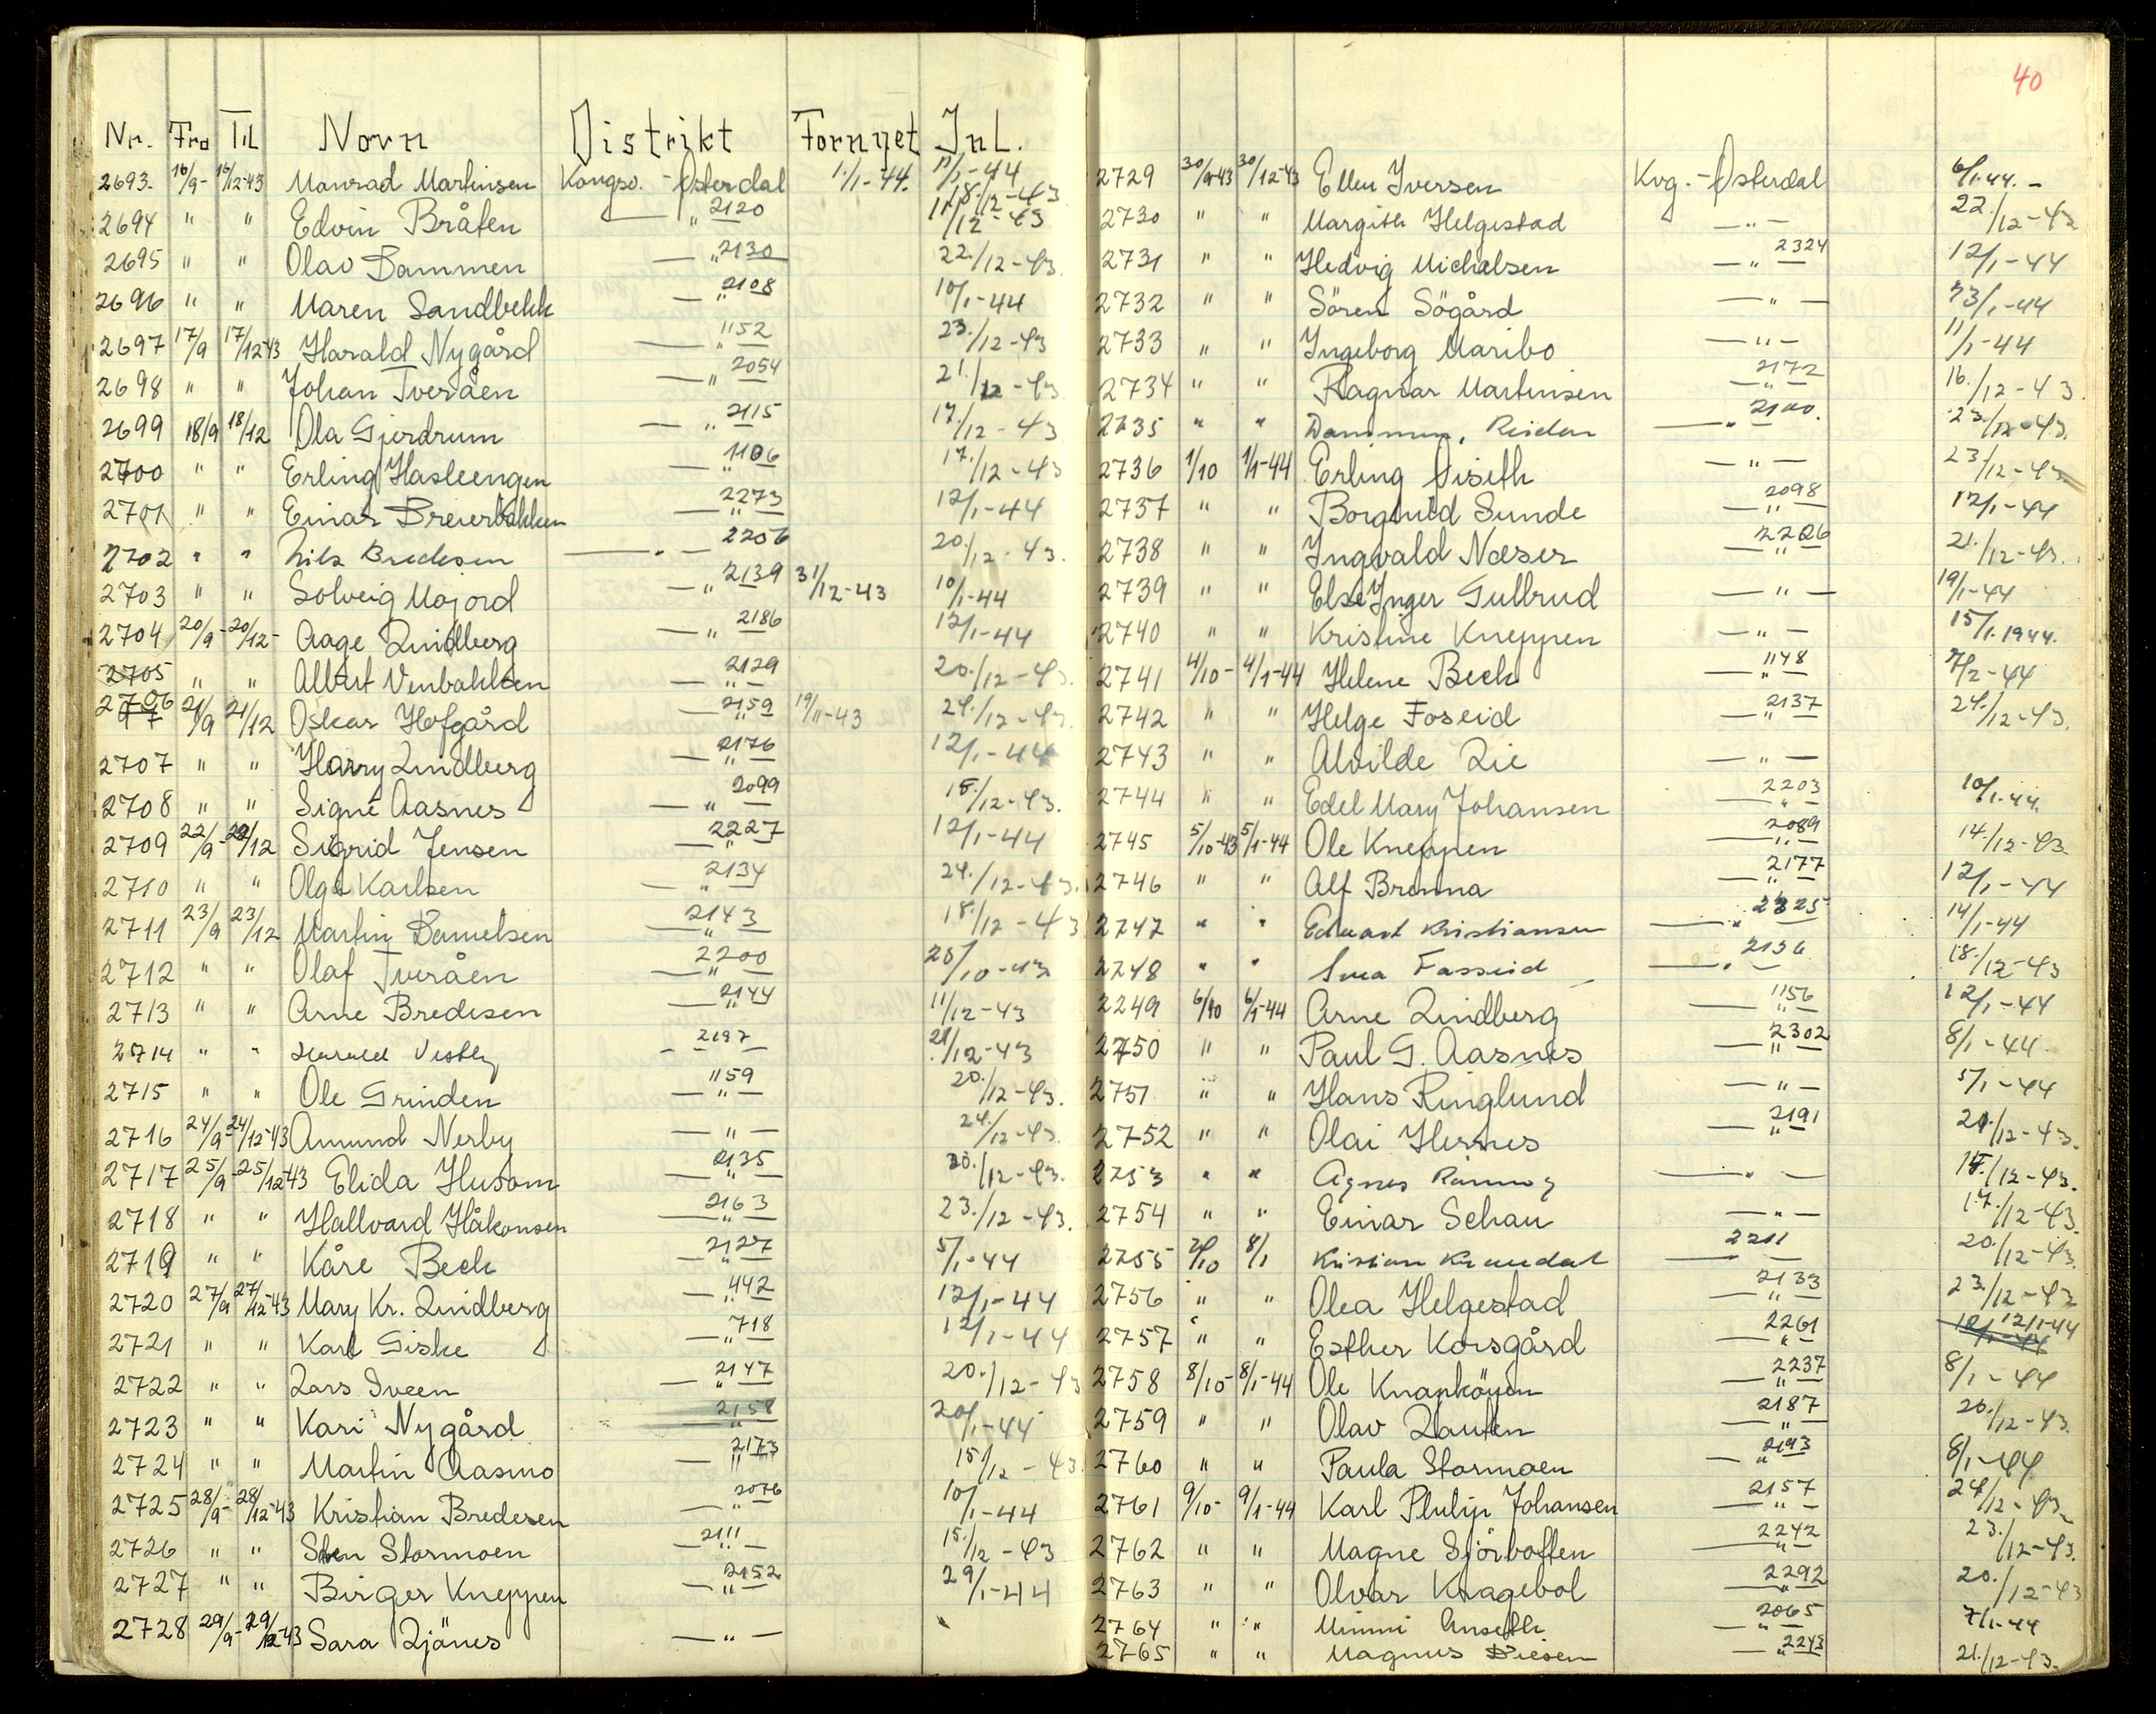 Nr. Fra Til Navn Distrikt Fornyet Inl.
2693. 16/9- 16/12-43 Manrad Martinsen Kongsv. - Østerdal 1./1-44. 17/1-44
2694 " " Edvin Bråten —"— 2120 18./12-43 11/12-43
2695 " " Olav Dammen —"— 2130 22./12-43.
2696 " " Maren Sandbekk —"— 2108 10/1-44
2697 17/9 17/12-43 Harald Nygård —"— 1152 23./12-43
2698 " " Johan Tveråen —"— 2054 21./12-43
2699 18/9 18/12 Ola Gjerdrum —"— 2115 17./12-43
2700 " " Erling Hasleengen —"— 1106 17./12-43
2701 " " Einar Breierbakken —"— 2273 12/1-44
2702 " " Nils Bredesen —"— 2206 20./12-43.
2703 " " Solveig Mojord —"— 2139 31/12-43 10/1-44
2704 20/9- 20/12- Aage Lindberg —"— 2186 12/1-44
2705 " " Albert Venbakken —"— 2129 20./12-43.
2706 21/9 21/12 Oskar Hofgård —"— 2159 19/11-43 24./12-43.
2707 " " Harry Lindberg —"— 2176 12/1-44
2708 " " Signe Aasnes —"— 2099 15./12-43.
2709 22/9- 22/12 Sigrid Jensen —"— 2227 12/1-44
2710 " " Olga Karlsen —"— 2134 24./12-43.
2711 23/9 23/12 Martin Danielsen —"— 2143 18./12-43
2712 " " Olaf Tveråen —"— 2200 25/10-43
2713 " " Arne Bredesen —"— 2144 11/12-43
2714 " " Harald Vestby —"— 2197 21/12-43
2715 " " Ole Grinden —"— 1159 20./12-43.
2716 24/9- 24/12-43 Amund Nerby —"— 24./12-43.
2717 25/9- 25/12-43 Elida Husom —"— 2135 20./12-43.
2718 " " Hallvard Håkonsen —"— 2163 23./12-43.
2719 " " Kåre Beck —"— 2127 5/1-44
2720 27/9 27/12-43 Mary Kr. Lindberg —"— 442 12/1-44
2721 " " Karl Giske —"— 718 12/1-44
2722 " " Lars Sveen —"— 2147 20./12-43
2723 " " Kari Nygård —"— 2158 20/1-44
2724 " " Martin Aasmo —"— 2173 15/12-43
2725 28/9- 28/12-43 Kristian Bredesen —"— 2076 10/1-44
2726 " " Sten Stormoen —"— 2111 15./12-43
2727 " " Birger Kneppen —"— 2152 29/1-44
2728 29/9- 29/12-43 Sara Ljånes —"—
40
2729 30/9-43 30/12-43 Ellen Iversen Kvg. - Østerdal 6/1-44. -
2730 " " Margith Helgestad —"— 22./12-43
2731 " " Hedvig Michalsen —"— 2324 12/1-44
2732 " " Sören Sögård —"— 13/1-44
2733 " " Ingeborg Maribo —"— 11/1-44
2734 " " Ragnar Martinsen —"— 2172 16./12-43.
2735 " " Dammen, Reidar —"— 2100. 23./12-43.
2736 1/10 1/1-44 Erling Øiseth —"— 23/12-43
2737 " " Borghild Sunde —"— 2098 12/1-44
2738 " " Ingvald Næser —"— 2206 21./12-43.
2739 " " Else Inger Gulbrud —"— 19/1-44
2740 " " Kristine Kneppen —"— 15/1.1944.
2741 4/10- 4/1-44 Helene Beck —"— 1148 7/2-44
2742 " " Helge Foseid —"— 2137 24./12-43.
2743 " " Alvilde Lie —"—
2744 " " Edel Mary Johansen —"— 2203 10/1-44.
2745 5/10-43 5/1-44 Ole Kneppen —"— 2089 14./12-43.
2746 " " Alf Brenna —"— 2177 12/1-44
2747 " " Edvart Kristiansen —"— 2325 14/1-44
2748 " " Svea Fasseid —"— 2136 18./12-43
2249 6/10 6/1-44 Arne Lindberg —"— 1156 12/1-44
2750 " " Paul G. Aasnes —"— 2302 8/1-44
2751 " " Hans Ringlund —"— 5/1-44
2752 " " Olai Hernes —"— 2191 21./12-43.
2753 " " Agnes —"— 15./12-43.
2754 " " Einar Schau —"— 17./12-43.
2755 7/10 8/1 Kristian —"— 2211 20./12-43.
2756 " " Olea Helgestad —"— 2133 23/12-43
2757 " " Esther Korsgård —"— 2261 12/1-44
2758 8/10- 8/1-44 Ole Knapköyen —"— 2237 8/1-44
2759 " " Olav Lauten —"— 2187 20./12-43.
2760 " " Paula Stormoen —"— 2193 8/1-44
2761 9/10- 9/1-44 Karl Philip Johansen —"— 2157 24/12-43.
2762 " " Magne Sjörbotten —"— 2242 23./12-43.
2763 " " Olvar Kragebol —"— 2292 20./12-43
2764 " " Minni Anseth —"— 2065 7/1-44
2765 " " Magnus Diesen —"— 2243 21./12-43.